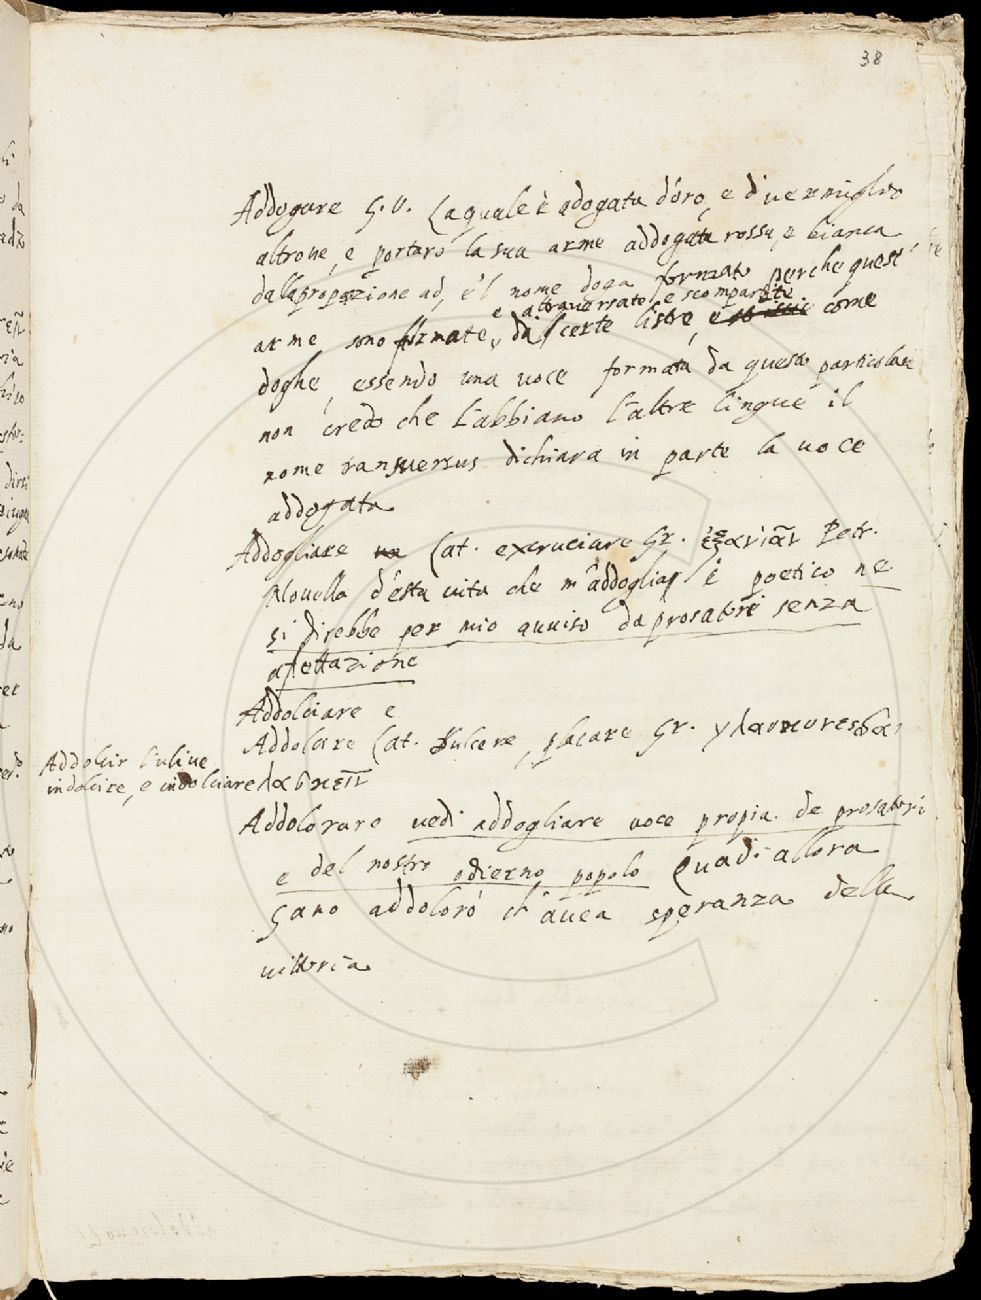 38
Addogare G. V. La quale è adogata d'oro, e di vermiglio
altrove, e portaro la sua arme addogata rossa, e bianca
dalla propozione ad, e 'l nome doga formato perche quest'
e attraversato e scompartite
arme sono formate, da certe liste, come
doghe, essendo una voce formata da questa particolare
non credo che l'abbiano l'altre lingue il
nome transversus dichiara in parte la voce
addogata
Addogliare Lat. excruciare Gr. ἐξανιᾶν Petr.
Novella d'esta vita che m'addoglia, è poetico ne
si direbbe per mio avviso da prosatori senza
afettazione
Addolciare e
Addolcire Lat. dulcere, placare Gr.
Addolcir l'ulive
indolcire, e indolciare
Addolorare vedi addogliare voce propia de prosatori
e del nostro odierno popolo Quadi allora
Gano addolorò ch'avea speranza della
vittoria